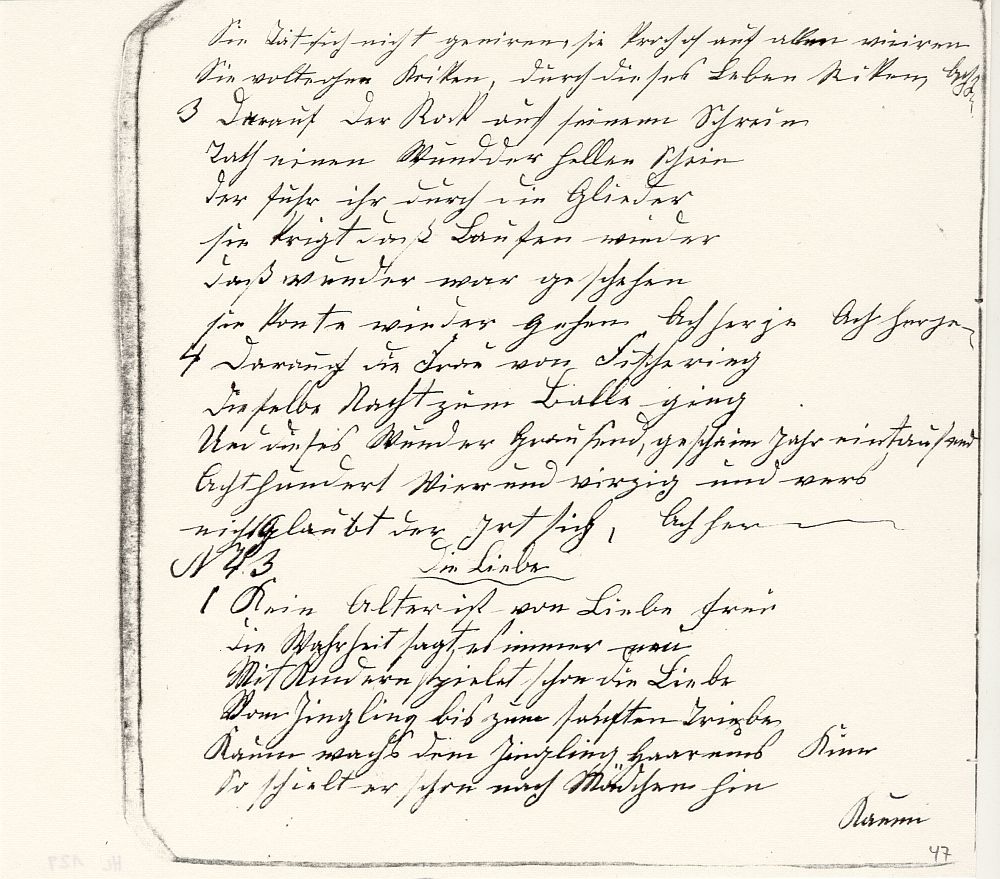 Sie Tat sich nicht geniren, sie kroch auf allen vieren
Sie wolte ohne Kriken, durch dieses Leben Riken, Ach
3 Darauf der Rock aus seinem Schrein
Tath einen Wundder hellen Schein
der fuhr ihr durch die Glieder
sie krigt daß Laufen wieder
daß wunder war geschehen
sie konte wieder Gehen Ach herje Ach herje
4 Darauf die Frau von Fischering
dieselbe Nacht zum Balle ging
Und dieses Wunder Grausend, geschah im Jahr eintausend
Achthundert Vier und virzig und wers
nicht Glaubt der Irt sich, Ach her
N 43 Die Liebe
1 Kein Alter ist von Liebe frei
die Wahrheit sagt es immer neu
Mit Kindern spielet schon die Liebe
Vom Jingling bis zum sanften Triebe
Kaum wachs dem Jingling Haar ums Kinn
So schielt er schon nach Mädchen hin
Kaum
47